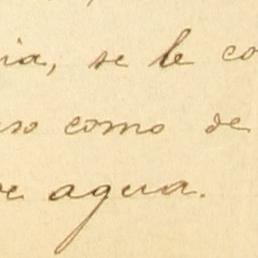 ia, se le co
so como de
de agua.